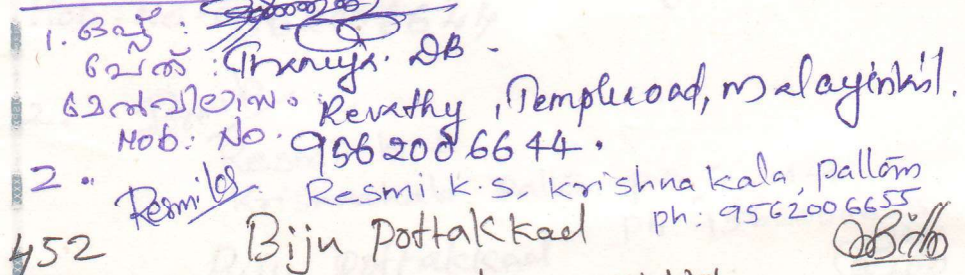 1. ഒപ്പ് :
പേര് : Thanuja. DB -
മേൽവിലാസം : Revathy, Temple road, malayinkil.
Mob: No. 9562006644.
2. Resmi K.S, Krishna kala, Pallam
ph: 9562006655
452 Biju Pottakkad